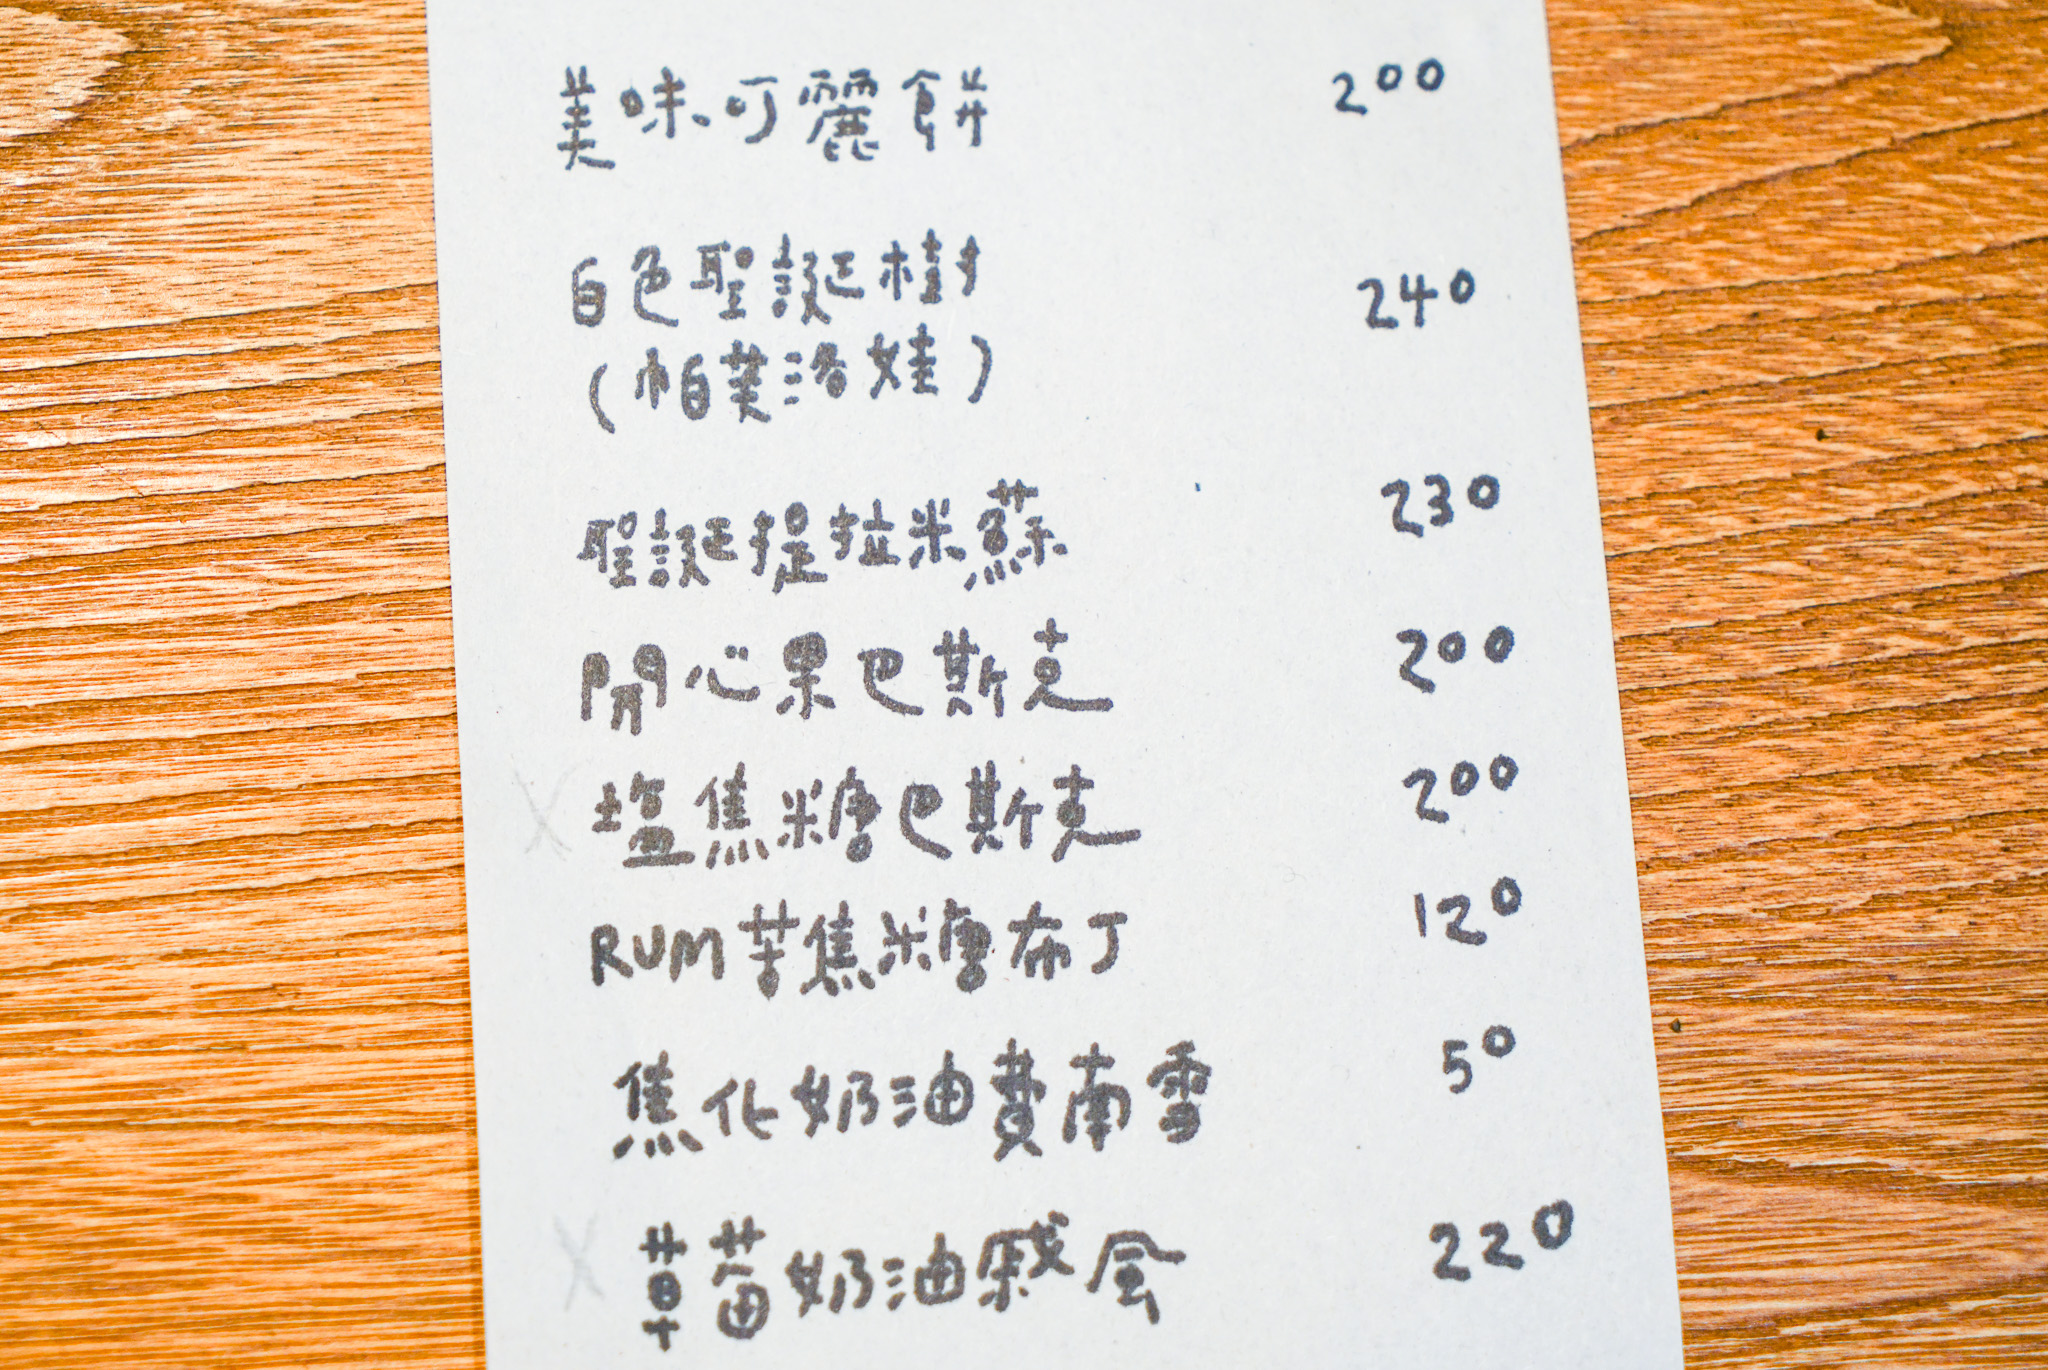 美味可麗餅 200
白色聖誕樹 240
(帕芙洛娃)
聖誕提拉米蘇 230
開心果巴斯克 200
X 塩焦糖巴斯克 200
RUM苦焦糖布丁 120
焦化奶油費南雪 50
X 草苗奶油戚風 220